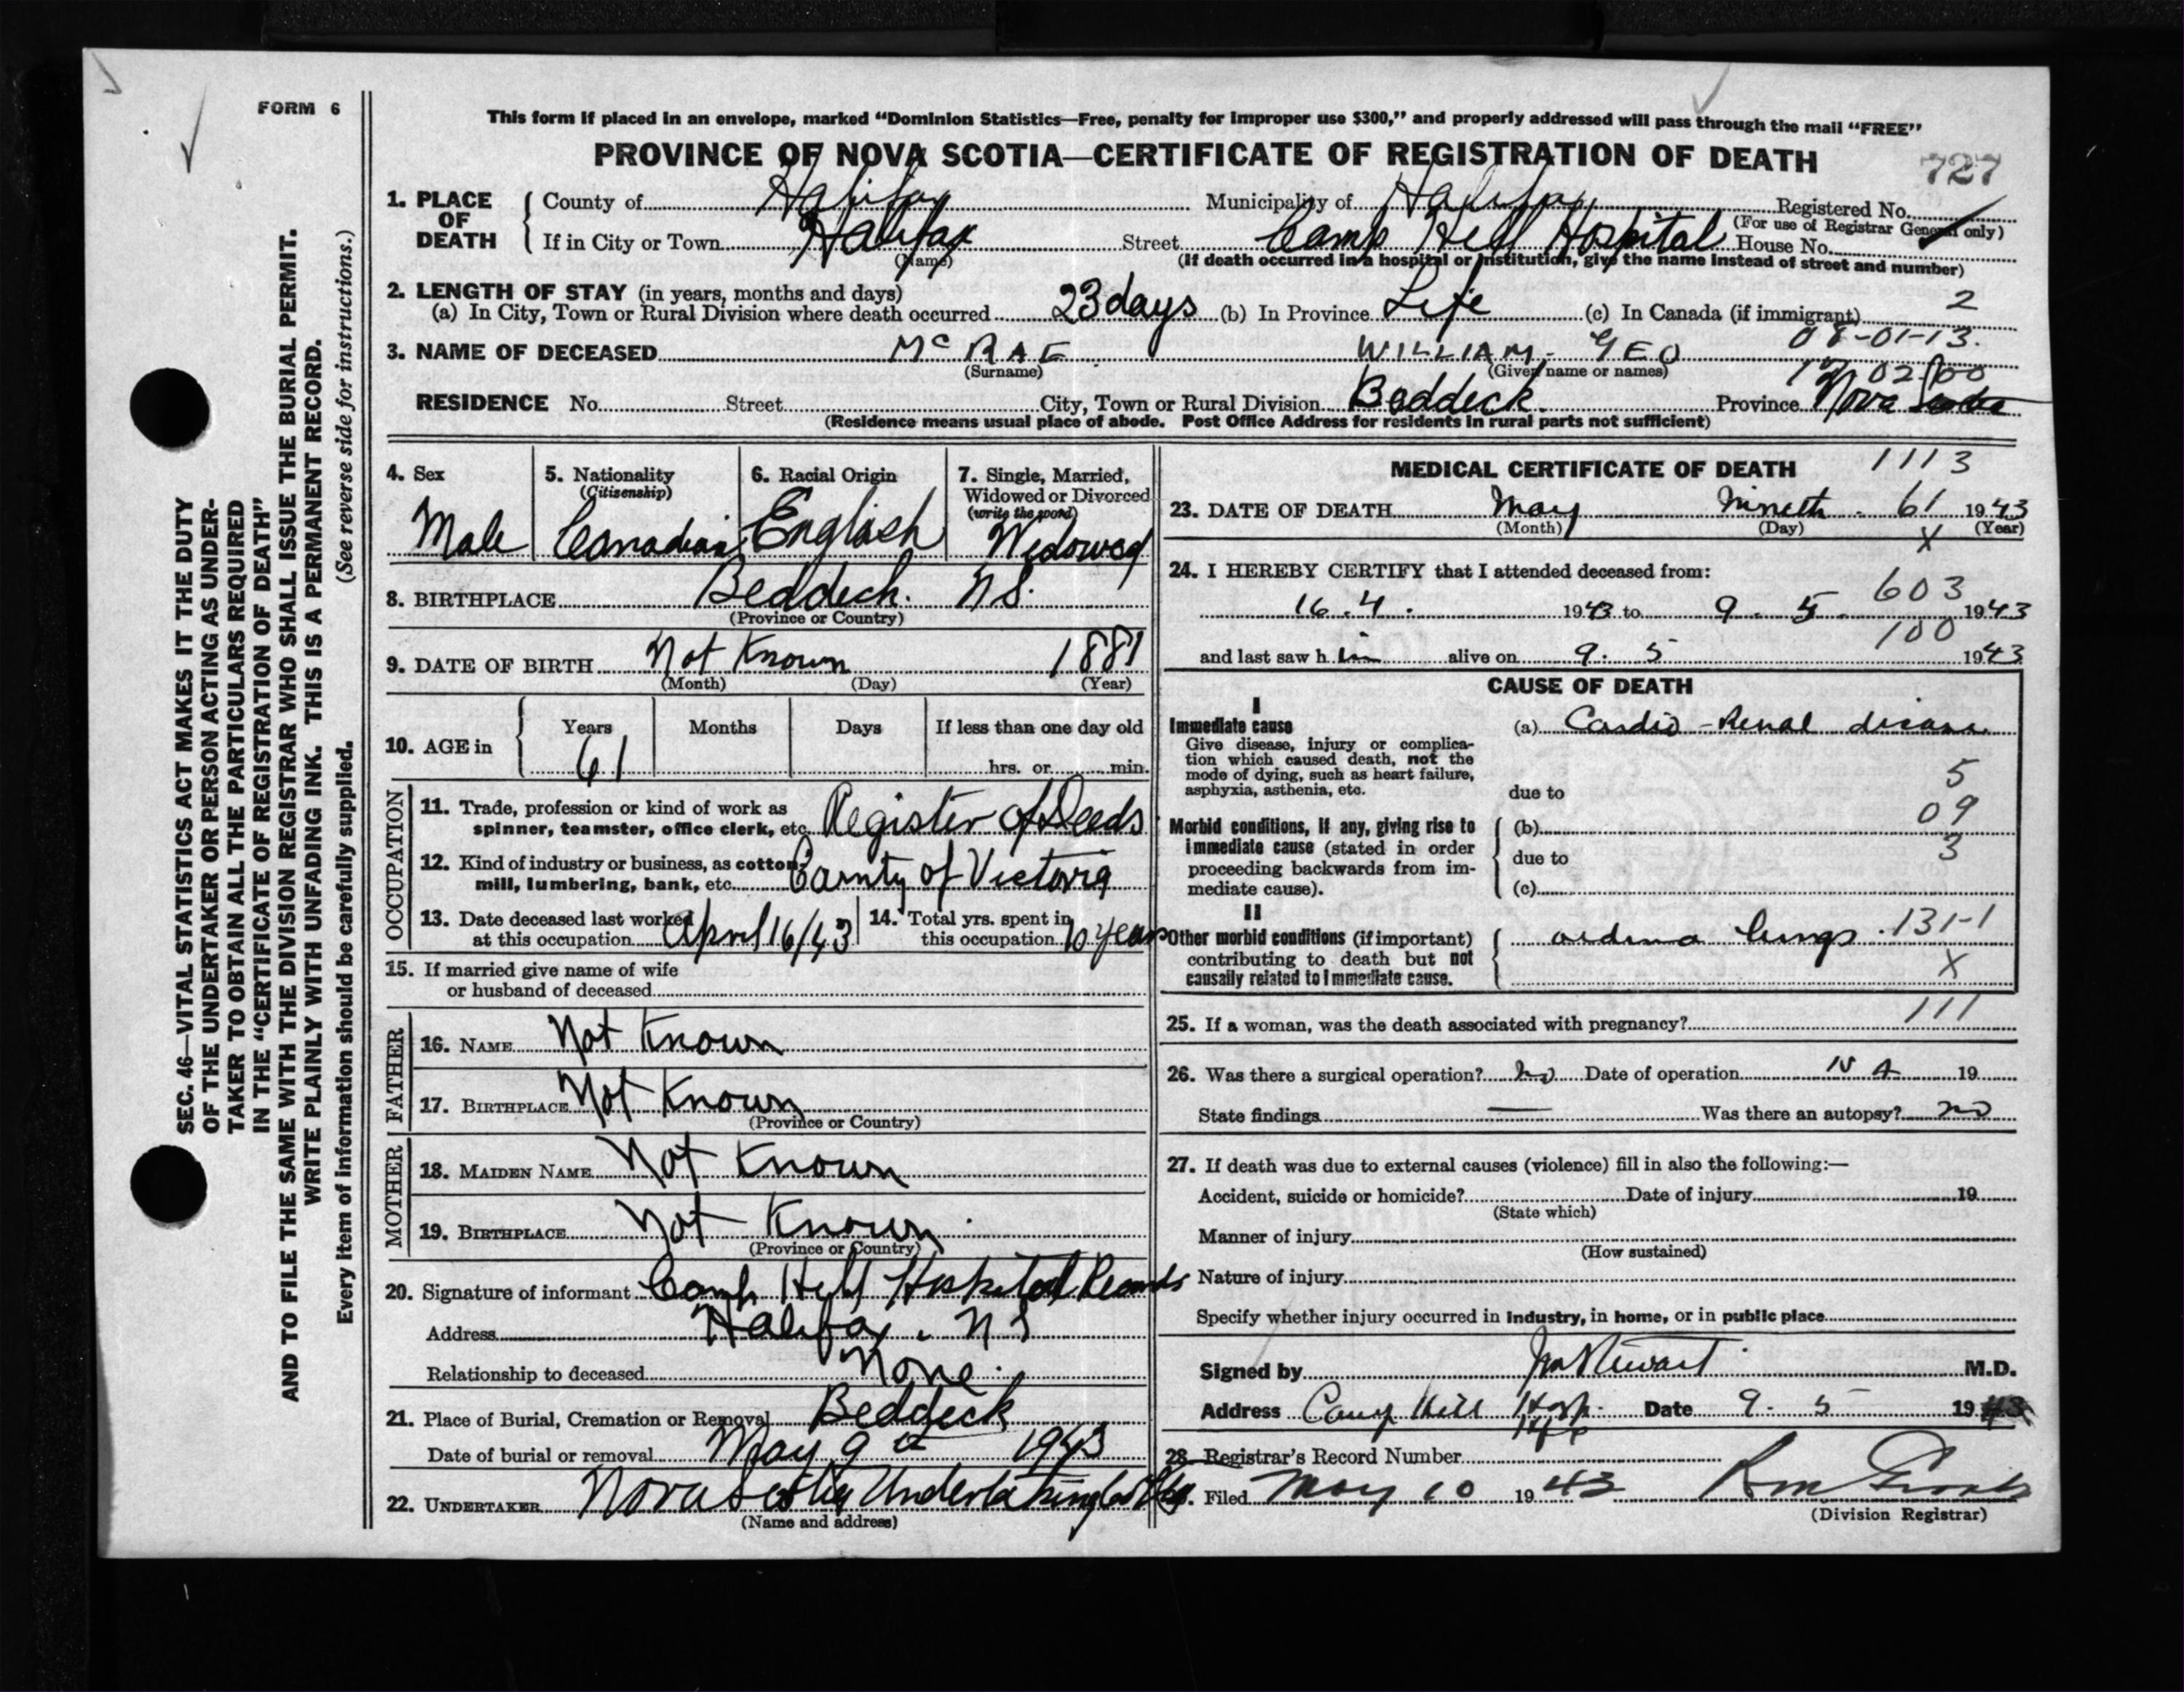 FORM 6
SEC. 46—VITAL STATISTICS ACT MAKES IT THE DUTY
OF THE UNDERTAKER OR PERSON ACTING AS UNDER-
TAKER TO OBTAIN ALL THE PARTICULARS REQUIRED
IN THE "CERTIFICATE OF REGISTRATION OF DEATH"
AND TO FILE THE SAME WITH THE DIVISION REGISTRAR WHO SHALL ISSUE THE BURIAL PERMIT.
WRITE PLAINLY WITH UNFADING INK. THIS IS A PERMANENT RECORD.
Every item of information should be carefully supplied. (See reverse side for instructions.)
This form if placed in an envelope, marked "Dominion Statistics—Free, penalty for improper use $300," and properly addressed will pass through the mail "FREE"
PROVINCE OF NOVA SCOTIA—CERTIFICATE OF REGISTRATION OF DEATH 727
1. PLACE OF DEATH County of Halifax Municipality of Halifax Registered No.
(For use of Registrar General only)
If in City or Town Halifax Street Camp Hill Hospital House No.
(Name) (If death occurred in a hospital or institution, give the name instead of street and number)
2. LENGTH OF STAY (in years, months and days)
(a) In City, Town or Rural Division where death occurred 23 days (b) In Province Life (c) In Canada (if immigrant) 2
08-01-13.
3. NAME OF DECEASED McRAE WILLIAM GEO
(Surname) (Given name or names)
RESIDENCE No. Street City, Town or Rural Division Beddeck. Province Nova Scotia
(Residence means usual place of abode. Post Office Address for residents in rural parts not sufficient)
4. Sex Male
5. Nationality (Citizenship) Canadian
6. Racial Origin English
7. Single, Married, Widowed or Divorced (write the word) Widowed
8. BIRTHPLACE Beddeck. N.S.
(Province or Country)
9. DATE OF BIRTH Not Known 1881
(Month) (Day) (Year)
10. AGE in Years Months Days If less than one day old
61 hrs. or min.
OCCUPATION
11. Trade, profession or kind of work as
spinner, teamster, office clerk, etc. Register of Deeds
12. Kind of industry or business, as cotton
mill, lumbering, bank, etc. County of Victoria
13. Date deceased last worked
at this occupation April 16/43
14. Total yrs. spent in
this occupation 10 years
15. If married give name of wife
or husband of deceased
FATHER
16. NAME Not Known
17. BIRTHPLACE Not Known
(Province or Country)
MOTHER
18. MAIDEN NAME Not Known
19. BIRTHPLACE Not Known
(Province or Country)
20. Signature of informant Camp Hill Hospital Records
Address Halifax, N S
Relationship to deceased None
21. Place of Burial, Cremation or Removal Beddeck
Date of burial or removal May 9th 1943
22. UNDERTAKER Nova Scotia Undertaking Co
(Name and address)
MEDICAL CERTIFICATE OF DEATH 1113
23. DATE OF DEATH May Nineth 61 1943
(Month) (Day) (Year)
X
24. I HEREBY CERTIFY that I attended deceased from:
603
16.4. 1943 to 9. 5 1943
100
and last saw h im alive on 9. 5 1943
CAUSE OF DEATH
I
Immediate cause
Give disease, injury or complica-
tion which caused death, not the
mode of dying, such as heart failure,
asphyxia, asthenia, etc.
(a) Cardio-Renal disease
5
due to
09
Morbid conditions, if any, giving rise to
immediate cause (stated in order
proceeding backwards from im-
mediate cause).
(b)
due to 3
(c)
II
Other morbid conditions (if important)
contributing to death but not
causally related to immediate cause.
oedema lungs. 131-1
X
111
25. If a woman, was the death associated with pregnancy?
26. Was there a surgical operation? no Date of operation N A 19
State findings — Was there an autopsy? no
27. If death was due to external causes (violence) fill in also the following:—
Accident, suicide or homicide? Date of injury 19
(State which)
Manner of injury
(How sustained)
Nature of injury
Specify whether injury occurred in industry, in home, or in public place
Signed by Stewart M.D.
Address Camp Hill Hosp. Date 9. 5 1943
Hfx
28. Registrar's Record Number
Filed May 10 1943
(Division Registrar)